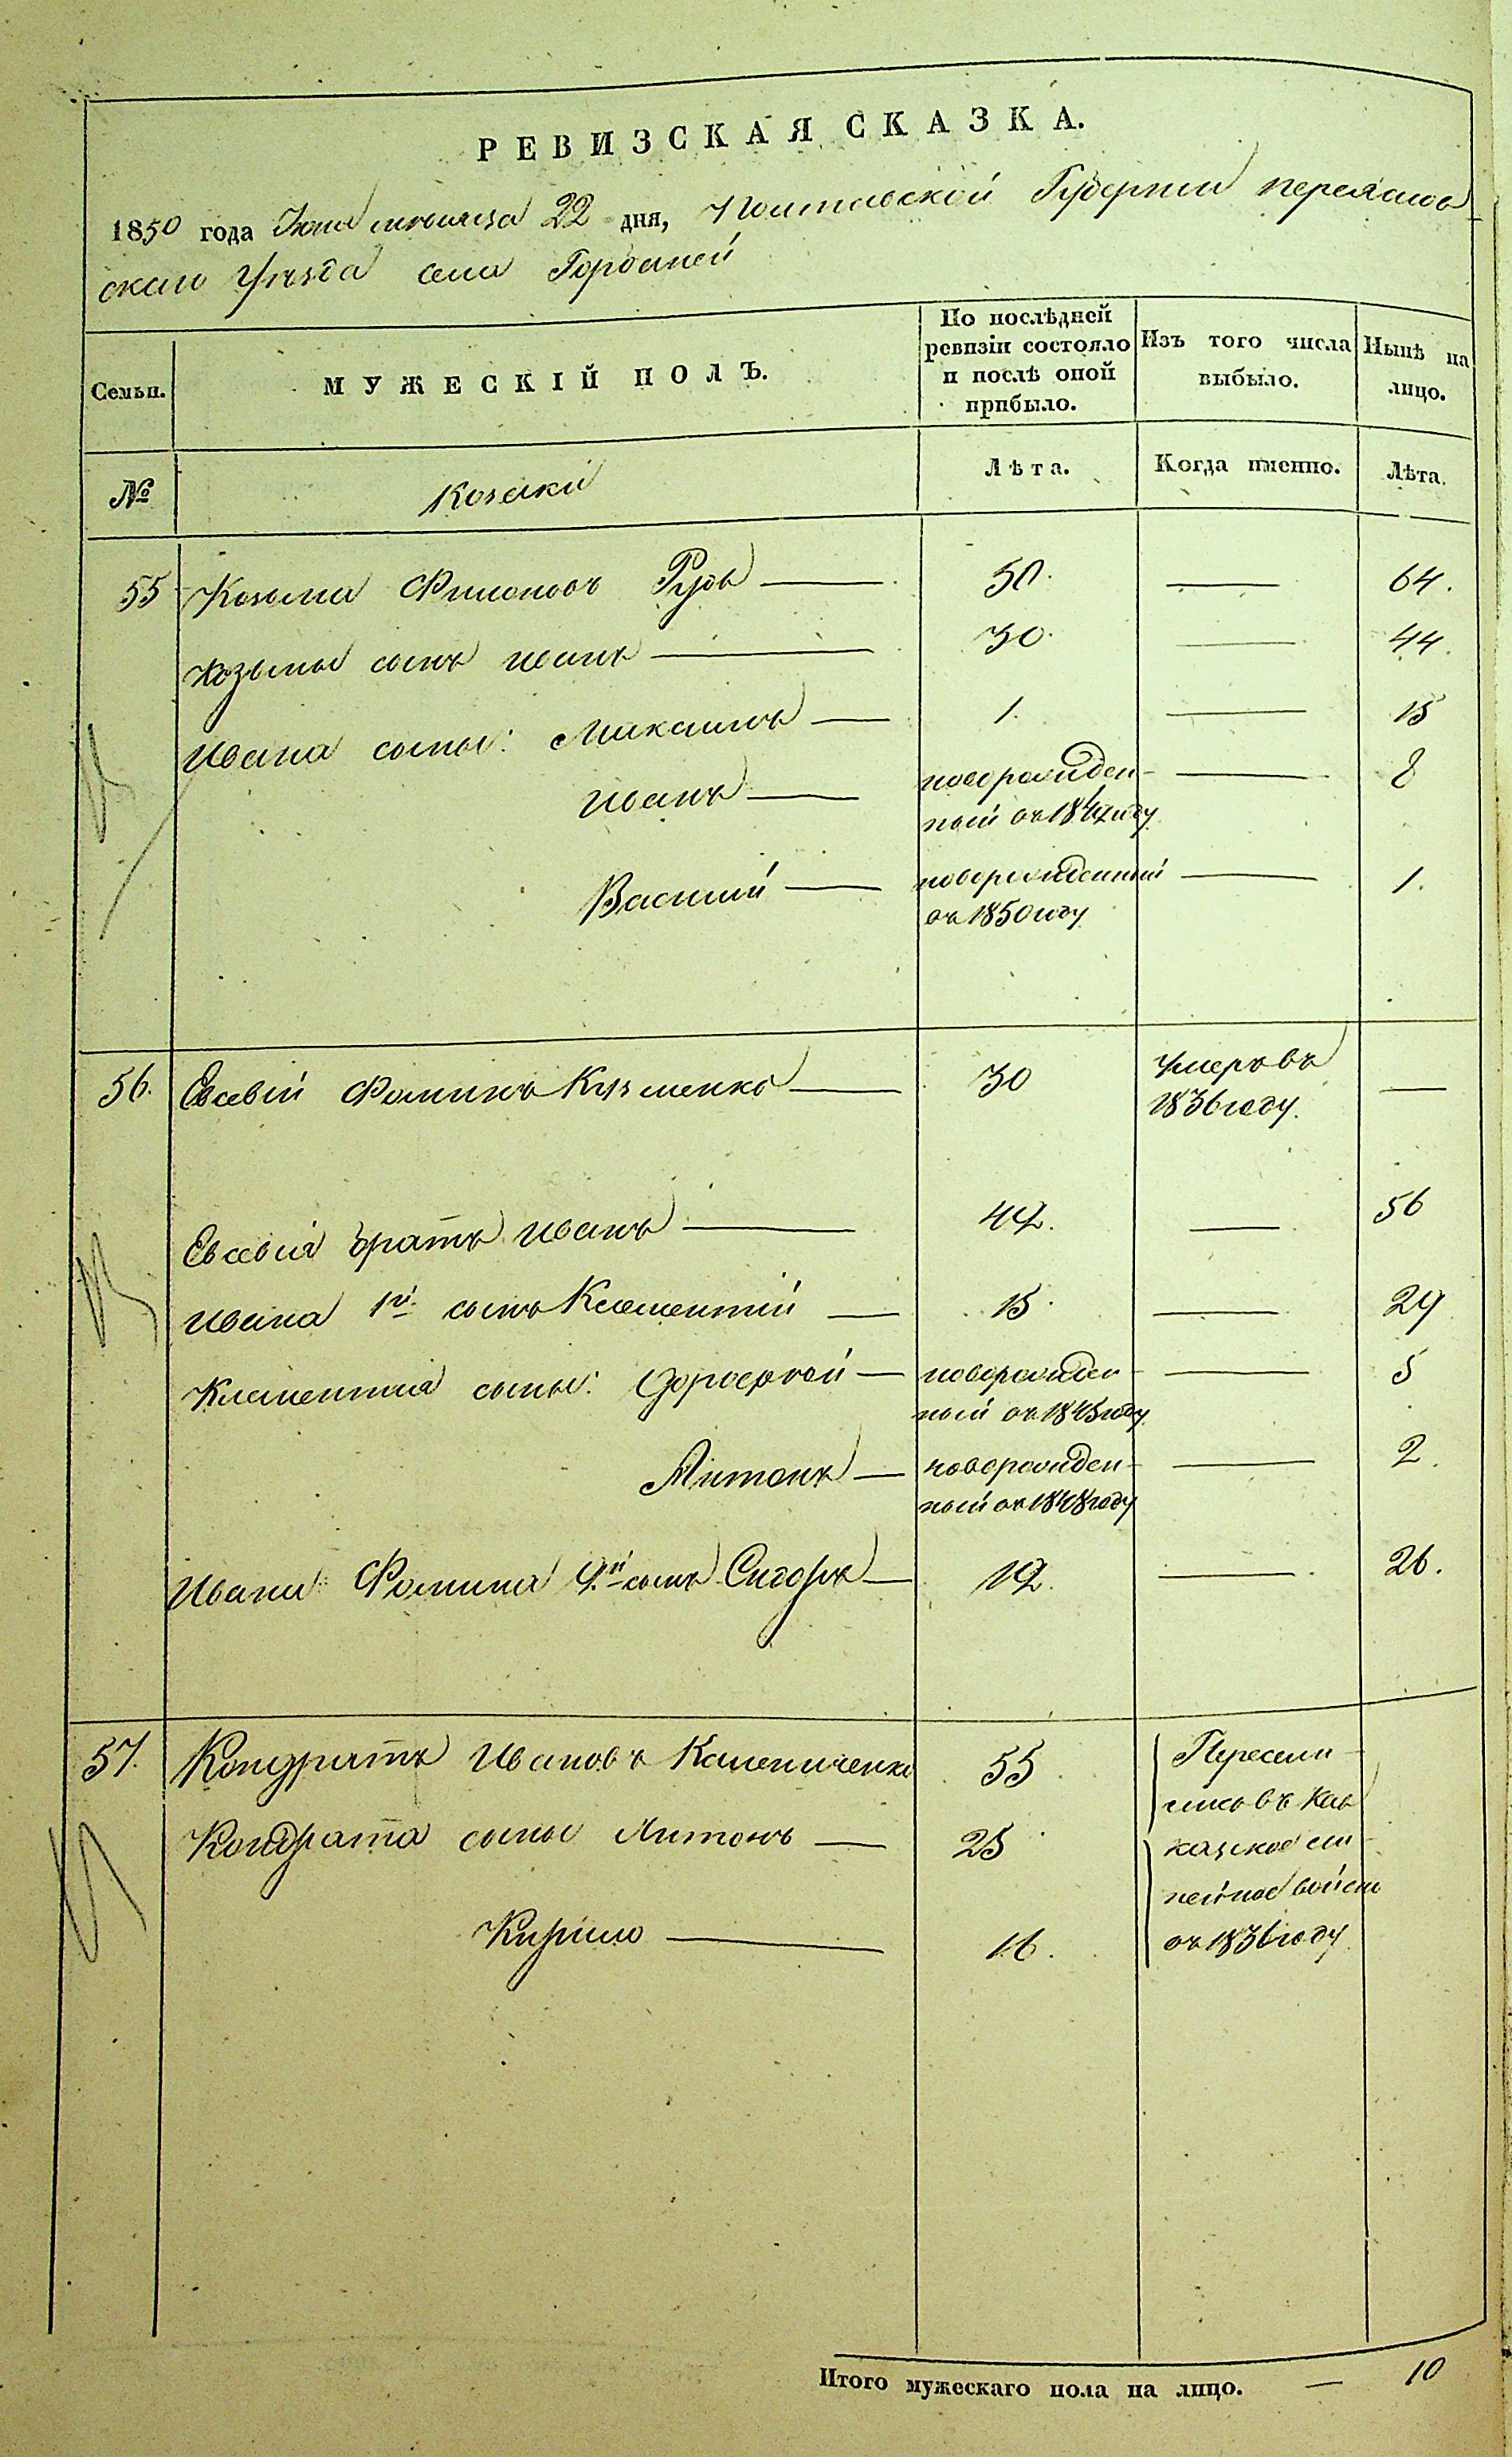 РЕВИЗСКАЯ СКАЗКА.
1850 года Июня месяца 22 дня, Полтавской Губернии переяслов-
скаго Уезда села Горбаней
Семьи.
МУЖЕСКІЙ ПОЛЪ.
По послѣдней ревизіи состояло и послѣ оной прибыло.
Изъ того числа выбыло.
Нынѣ на лицо.
№
Козаки
Лѣта.
Когда именно.
Лѣта.
55 Козьма Филоновъ Рудь — 50. — 64.
Козьмы сынъ Иванъ — 30. — 44.
Ивана сыны: Максимъ — 1. — 15
Иванъ — новорожден- — 8
ный въ 1842 году
Василий — новорожденный — 1.
въ 1850 году
56. Евсевій Фоминъ Кузменко — 30 умеръ въ —
1836 году.
Евсевія братъ Иванъ — 42. — 56
Ивана 1й. сынъ Клементий — 15. — 29
Клементия сыны: Дорофей — новорожден- — 5
ный въ 1845 году
Антонъ — новорожден- — 2.
ный въ 1848 году
Ивана Фомина 2й сынъ Сидоръ — 12. — 26.
57. Кондратъ Ивановъ Камениченко 55 Пересели-
лись въ Кав
Кондрата сыны Антонъ — 25 казкое ли-
нейное войско
Кирило — 16. въ 1836 году
Итого мужескаго пола на лицо. — 10